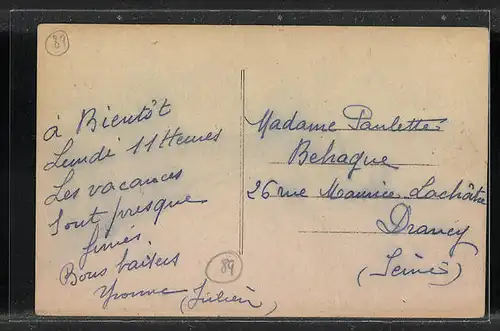 89
à Bientôt
Lundi 11 Heures
Les vacances
Sont presque
finies.
Bons baisers
Yvonne (Julien)
89
Madame Paulette
Behaque
26 rue Maurice Lachâtre
Drancy
(Seine)